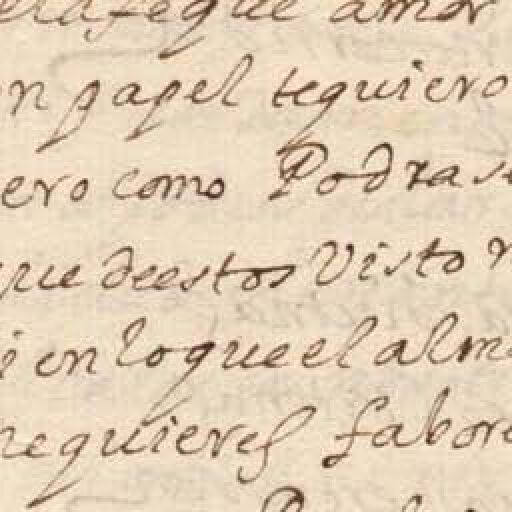 elafeque amor
en papel tequiero
ero como Podra se
que deestos Visto
i en loqueel alma
mequieres fabore